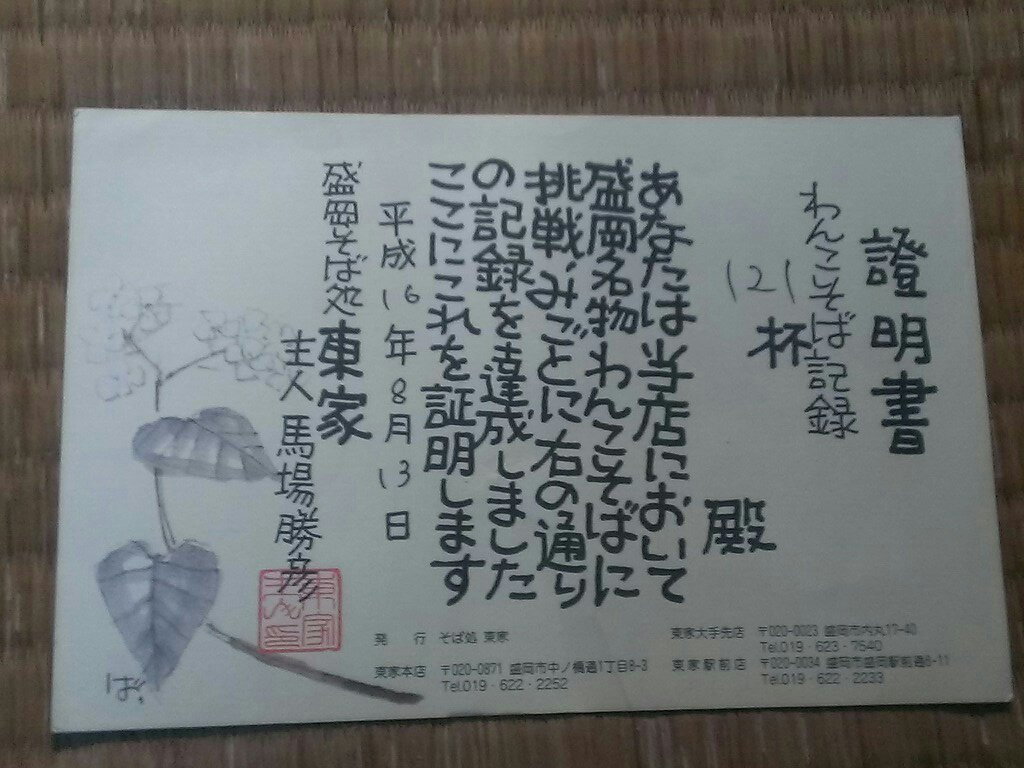 證明書
わんこそば記録
121杯
殿
あなたは当店において
盛岡名物わんこそばに
挑戦、みごとに右の通り
の記録を達成しました
ここにこれを証明します
平成16年8月13日
盛岡そば処 東家
主人 馬場勝彦
ば.
発 行 そば処 東家
東家本店 〒020-0871 盛岡市中ノ橋通1丁目8-3
Tel.019・622・2252
東家大手先店 〒020-0023 盛岡市内丸17-40
Tel.019・623・7540
東家駅前店 〒020-0034 盛岡市盛岡駅前通8-11
Tel.019・622・2233